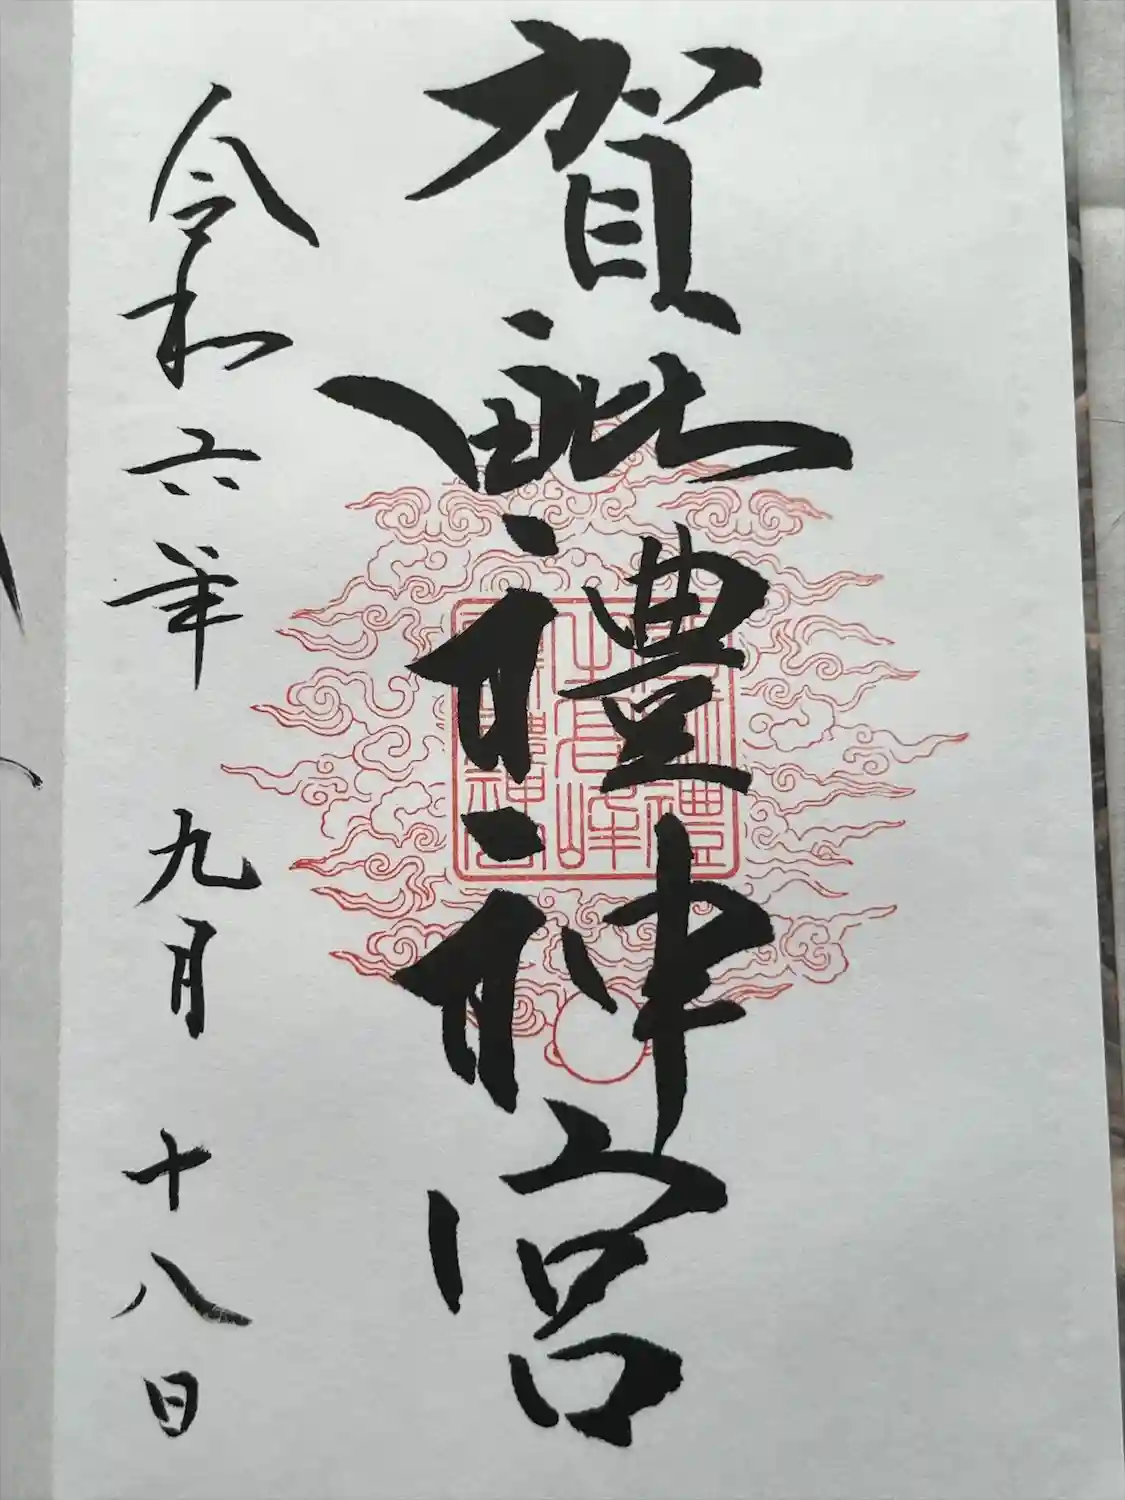 賀毗禮神宮
令和六年 九月 十八日
賀毗禮
之高峰